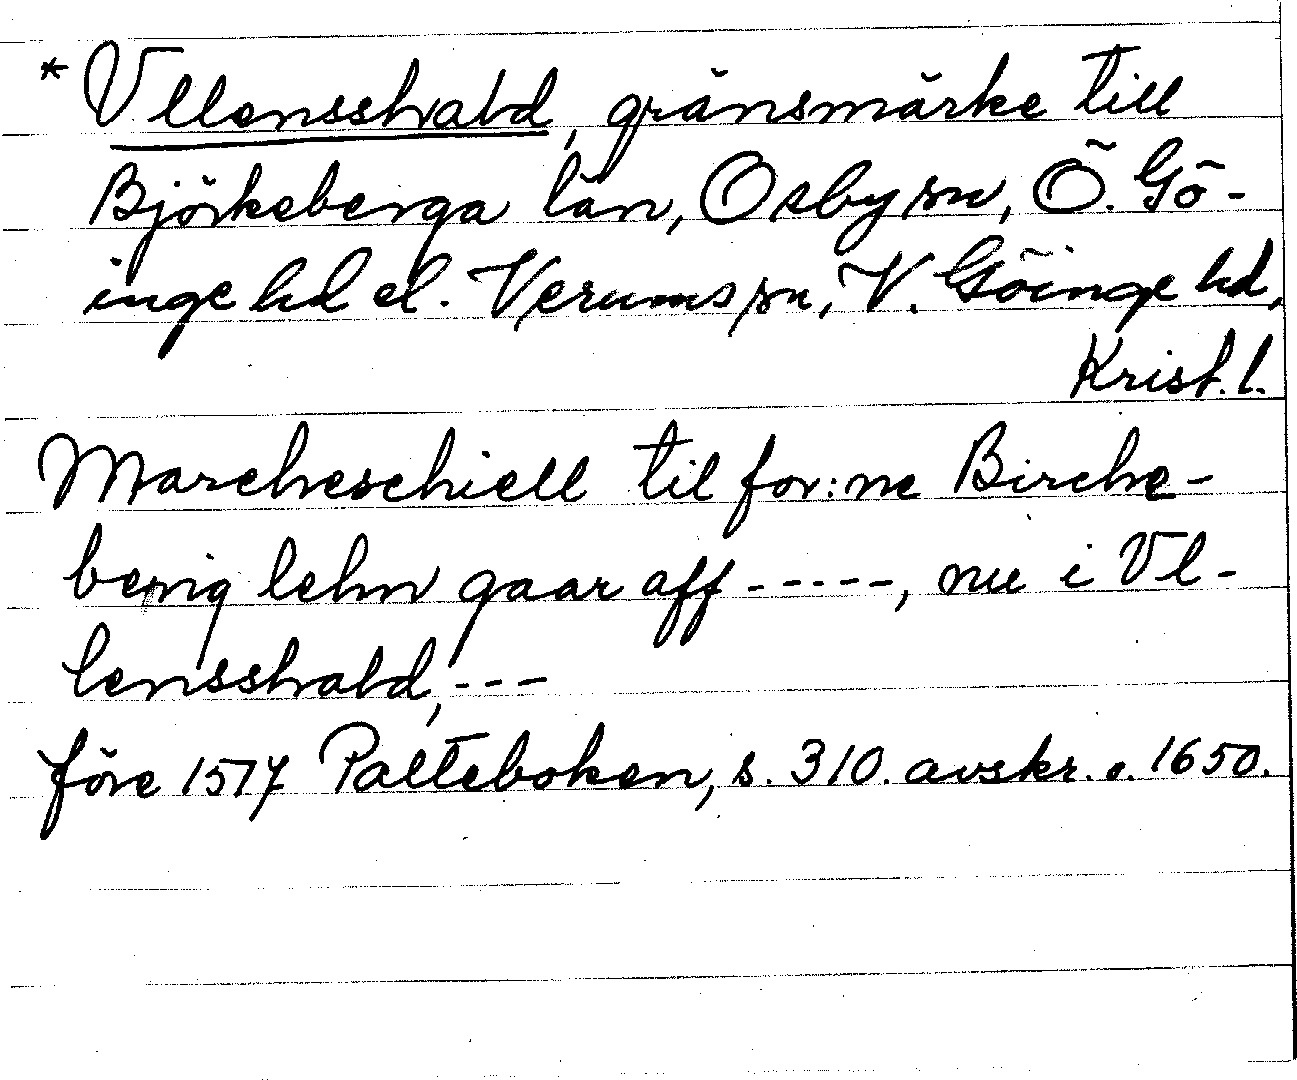 * Vllensshald, gränsmärke till
Björkeberga län, Osby sn, Ö. Gö-
inge hd el. Verums sn, V. Göinge hd,
Krist. l.
Marcheschiell til for:ne Birche-
berrig lehn gaar aff -----, nu i Vl-
lensshald, ---
före 1517 Palteboken, s. 310. avskr. c. 1650.